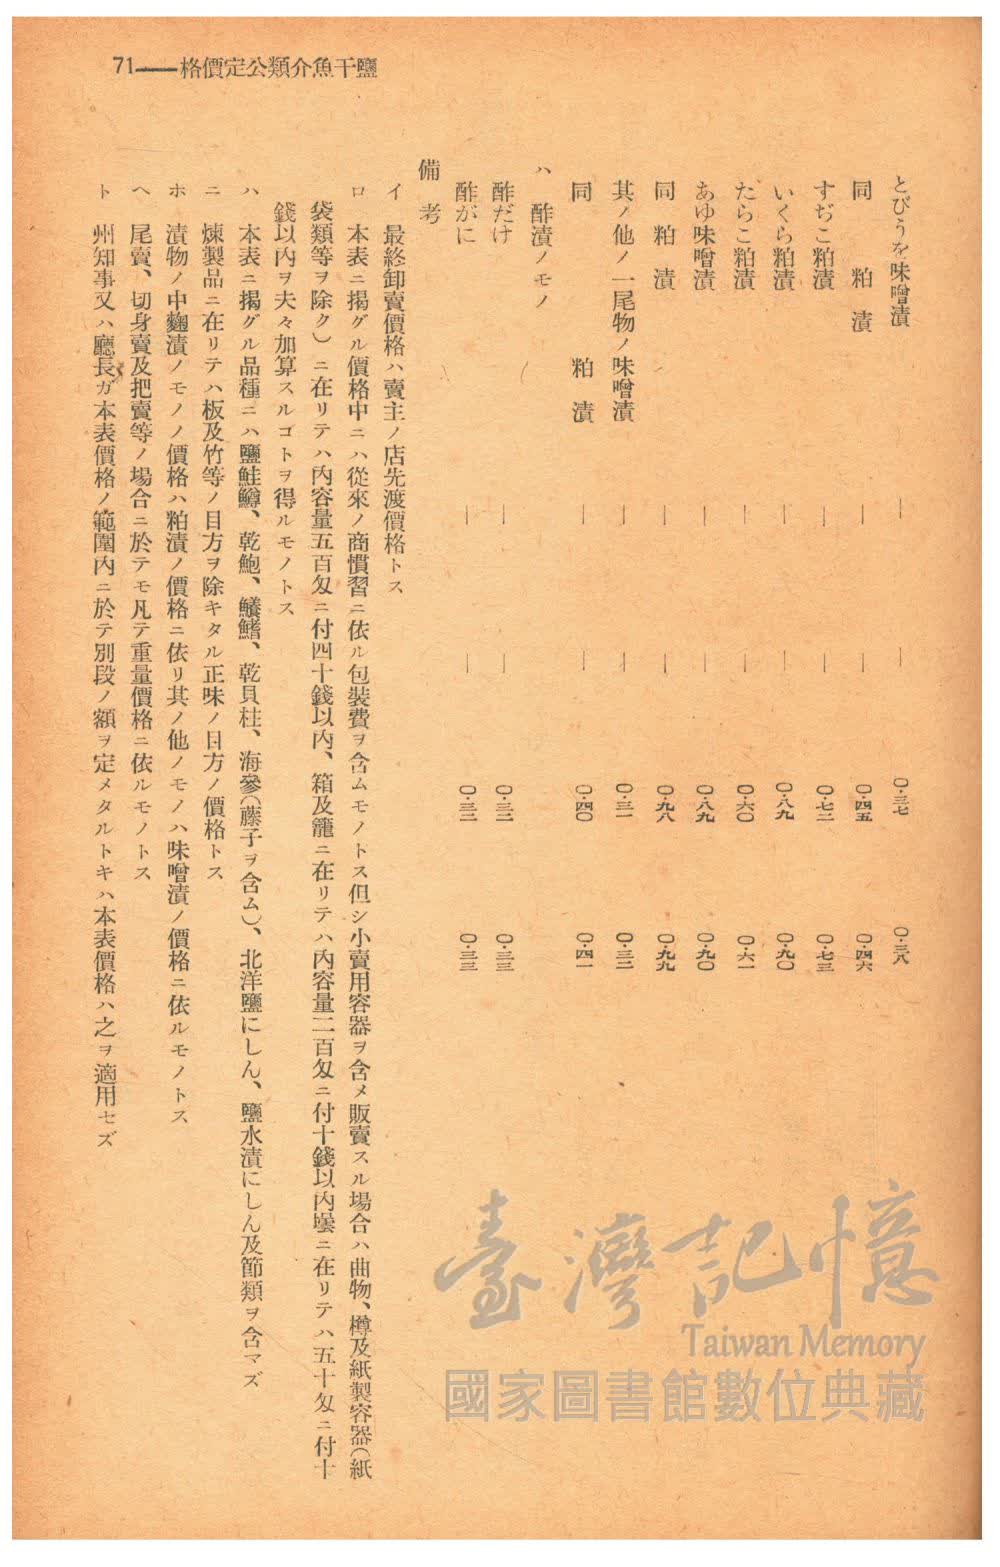 71——格價定公類介魚干鹽
とびうを味噌漬 — — 〇・三七 〇・三八
同 粕漬 — — 〇・四五 〇・四六
すぢこ粕漬 — — 〇・七二 〇・七三
いくら粕漬 — — 〇・八九 〇・九〇
たらこ粕漬 — — 〇・六〇 〇・六一
あゆ味噌漬 — — 〇・八九 〇・九〇
同 粕漬 — — 〇・九八 〇・九九
其ノ他ノ一尾物ノ味噌漬 — — 〇・三一 〇・三二
同 粕漬 — — 〇・四〇 〇・四一
ハ 酢漬ノモノ
酢だけ — — 〇・三二 〇・三三
酢がに — — 〇・三二 〇・三三
備考
イ 最終卸賣價格ハ賣主ノ店先渡價格トス
ロ 本表ニ揭グル價格中ニハ從來ノ商慣習ニ依ル包裝費ヲ含ムモノトス但シ小賣用容器ヲ含メ販賣スル場合ハ曲物、樽及紙製容器(紙
袋類等ヲ除ク)ニ在リテハ內容量五百匁ニ付四十錢以內、箱及籠ニ在リテハ內容量二百匁ニ付十錢以內壜ニ在リテハ五十匁ニ付十
錢以內ヲ夫々加算スルコトヲ得ルモノトス
ハ 本表ニ揭グル品種ニハ鹽鮭鱒、乾鮑、鱶鰭、乾貝柱、海參(藤子ヲ含ム)、北洋鹽にしん、鹽水漬にしん及節類ヲ含マズ
ニ 煉製品ニ在リテハ板及竹等ノ目方ヲ除キタル正味ノ目方ノ價格トス
ホ 漬物ノ中麴漬ノモノノ價格ハ粕漬ノ價格ニ依リ其ノ他ノモノハ味噌漬ノ價格ニ依ルモノトス
ヘ 尾賣、切身賣及把賣等ノ場合ニ於テモ凡テ重量價格ニ依ルモノトス
ト 州知事又ハ廳長ガ本表價格ノ範圍內ニ於テ別段ノ額ヲ定メタルトキハ本表價格ハ之ヲ適用セズ
臺灣記憶
Taiwan Memory
國家圖書館數位典藏